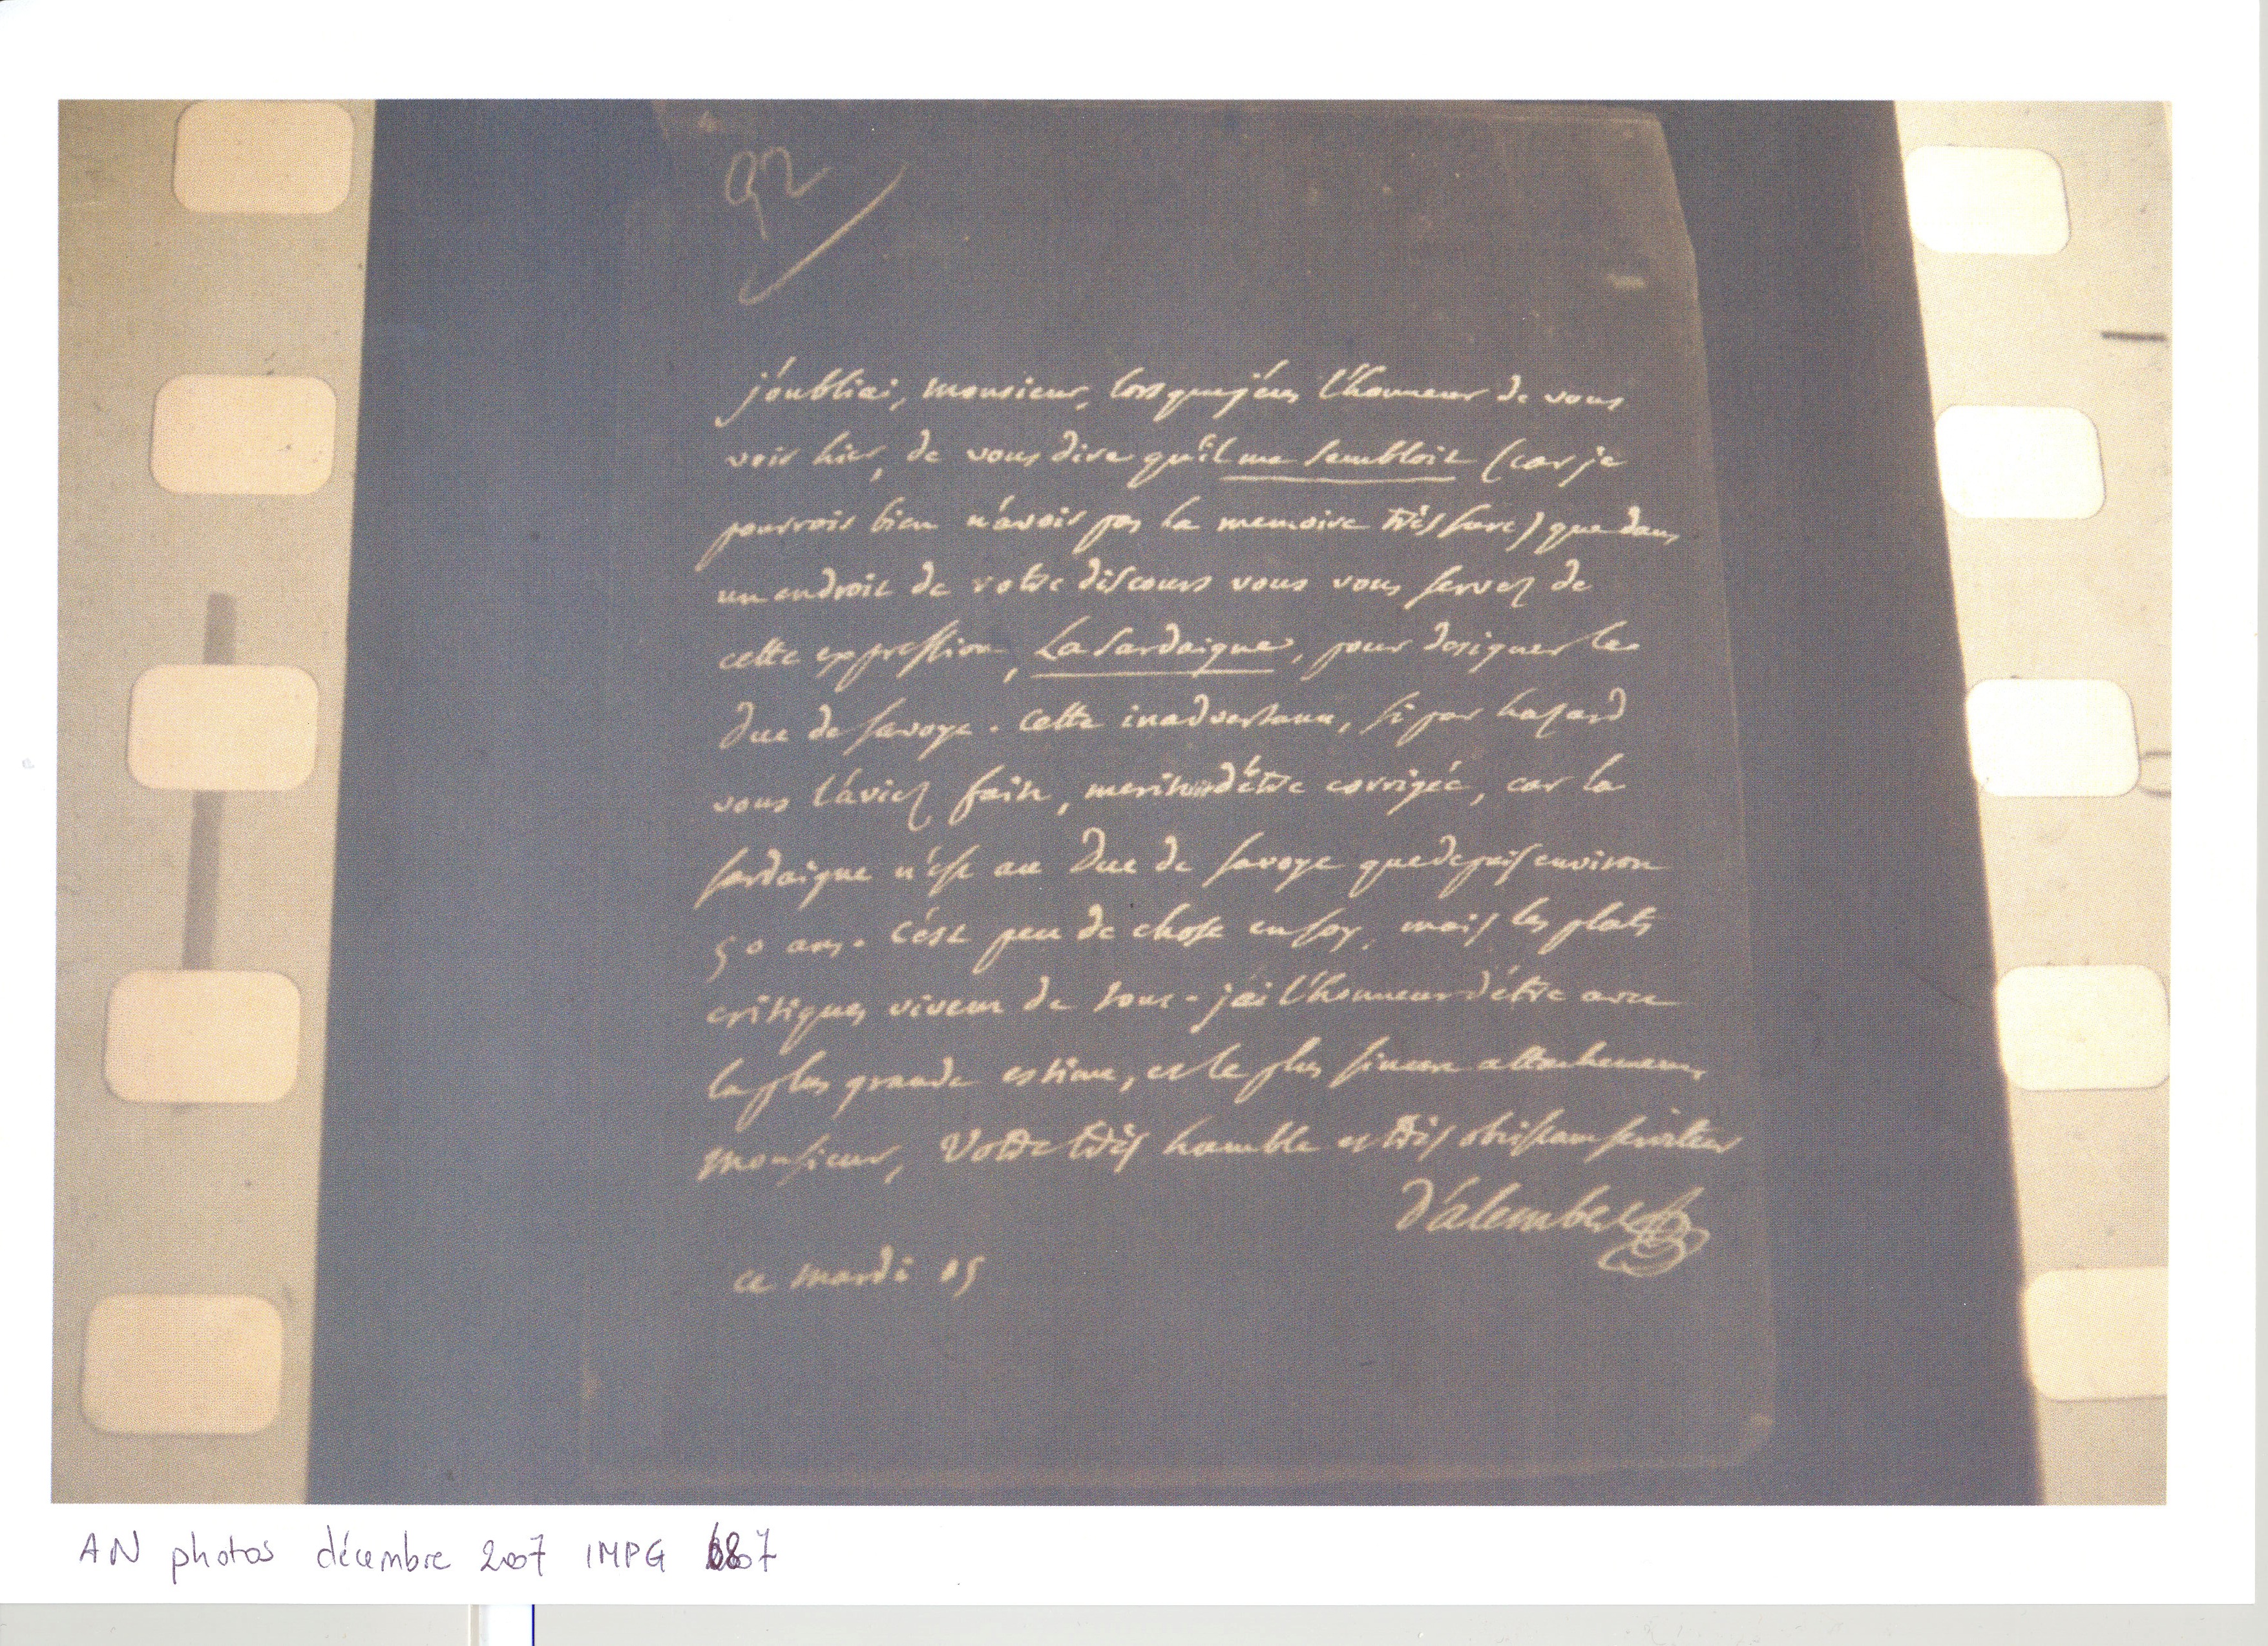 92
j'oubliai, monsieur, lorsque j'eus l'honneur de vous
voir hier, de vous dire qu'il me sembloit (car je
pourrois bien n'avoir pas la memoire très sure) que dans
un endroit de votre discours vous vous servez de
cette expression, La Sardaigne, pour designer le
Duc de Savoye. Cette inadvertance, si par hasard
vous l'aviez faite, merite d'être corrigée, car la
Sardaigne n'est au Duc de Savoye que depuis environ
50 ans. C'est peu de chose en soy, mais les plats
critiques vivent de tout. j'ai l'honneur d'être avec
la plus grande estime, et le plus sincere attachement,
Monsieur, Votre très humble et très obeissant serviteur
D'alembert
ce mardi 15
AN photos décembre 2007 IMPG